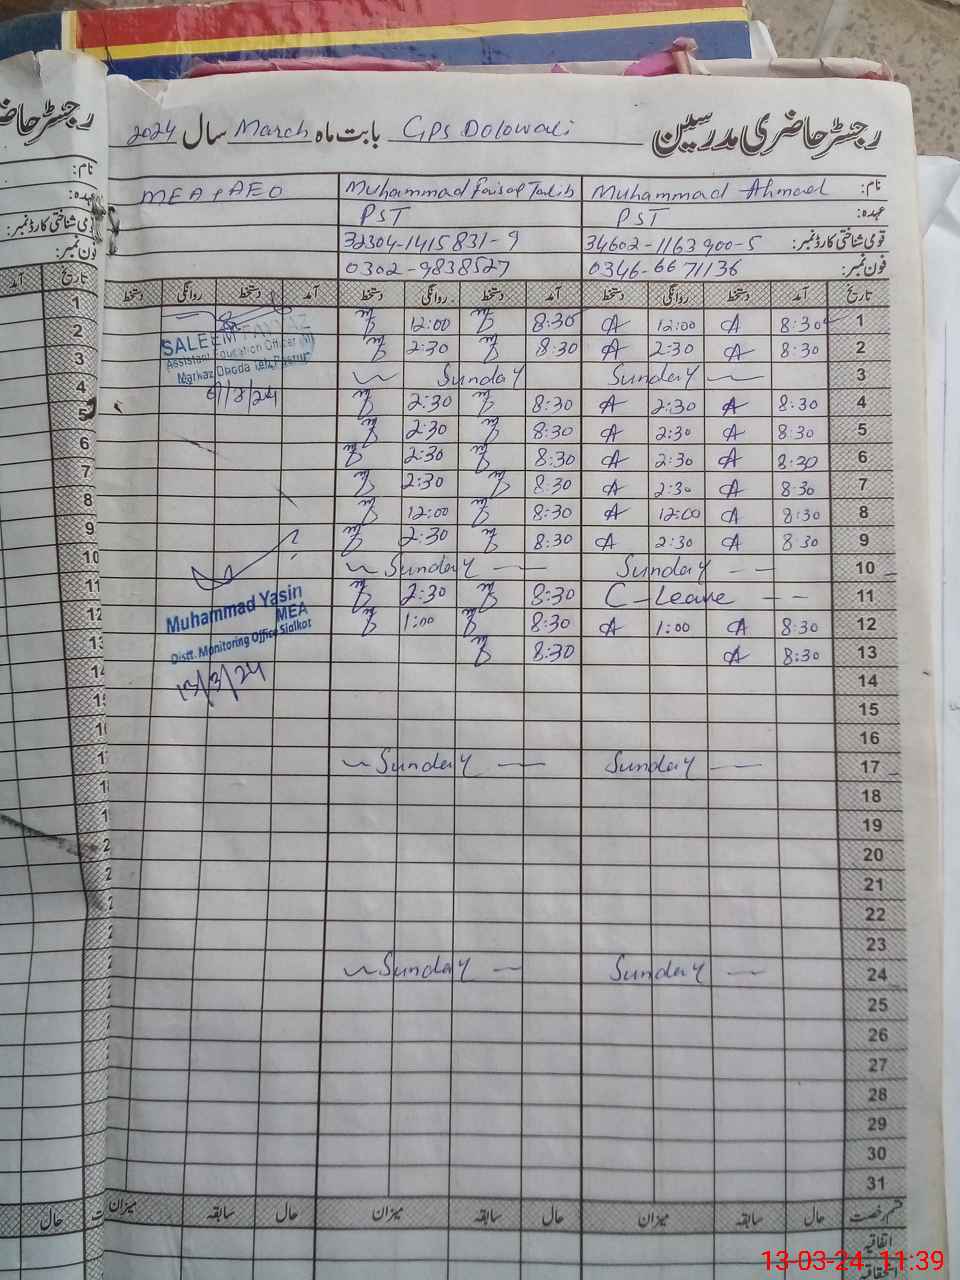 رجسٹر حاضری مدرسین GPS Dolowali بابت ماہ March سال 2024
نام: Muhammad Ahmad Muhammad Faisal Talib MEA + AEO
عہدہ: PST PST
قومی شناختی کارڈ نمبر: 34602-1163900-5 32304-1415831-9
فون نمبر: 0346-6671136 0302-9838527
تاریخ آمد دستخط روانگی دستخط آمد دستخط روانگی دستخط آمد دستخط روانگی دستخط
1 8:30 A 12:00 A 8:30 12:00
2 8:30 A 2:30 A 8:30 2:30
3 Sunday Sunday
4 8:30 A 2:30 A 8:30 2:30
5 8:30 A 2:30 A 8:30 2:30
6 8:30 A 2:30 A 8:30 2:30
7 8:30 A 2:30 A 8:30 2:30
8 8:30 A 12:00 A 8:30 12:00
9 8:30 A 2:30 A 8:30 2:30
10 Sunday Sunday
11 C-Leave 8:30 2:30
12 8:30 A 1:00 A 8:30 1:00
13 8:30 A 8:30
14
15
16
17 Sunday Sunday
18
19
20
21
22
23
24 Sunday Sunday
25
26
27
28
29
30
31
قسم رخصت حال سابقہ میزان حال سابقہ میزان حال سابقہ میزان
اتفاقیہ
SALEEM FAYYAZ
Assistant Education Officer (M)
Markaz Dhoda Teh. Pasrur
Muhammad Yasin
MEA
Distt. Monitoring Office Sialkot
13/3/24
رجسٹر حاضری
نام:
عہدہ:
قومی شناختی کارڈ نمبر:
فون نمبر:
تاریخ آمد
1
2
3
4
5
6
7
8
9
10
11
12
13
حال
13-03-24. 11:39